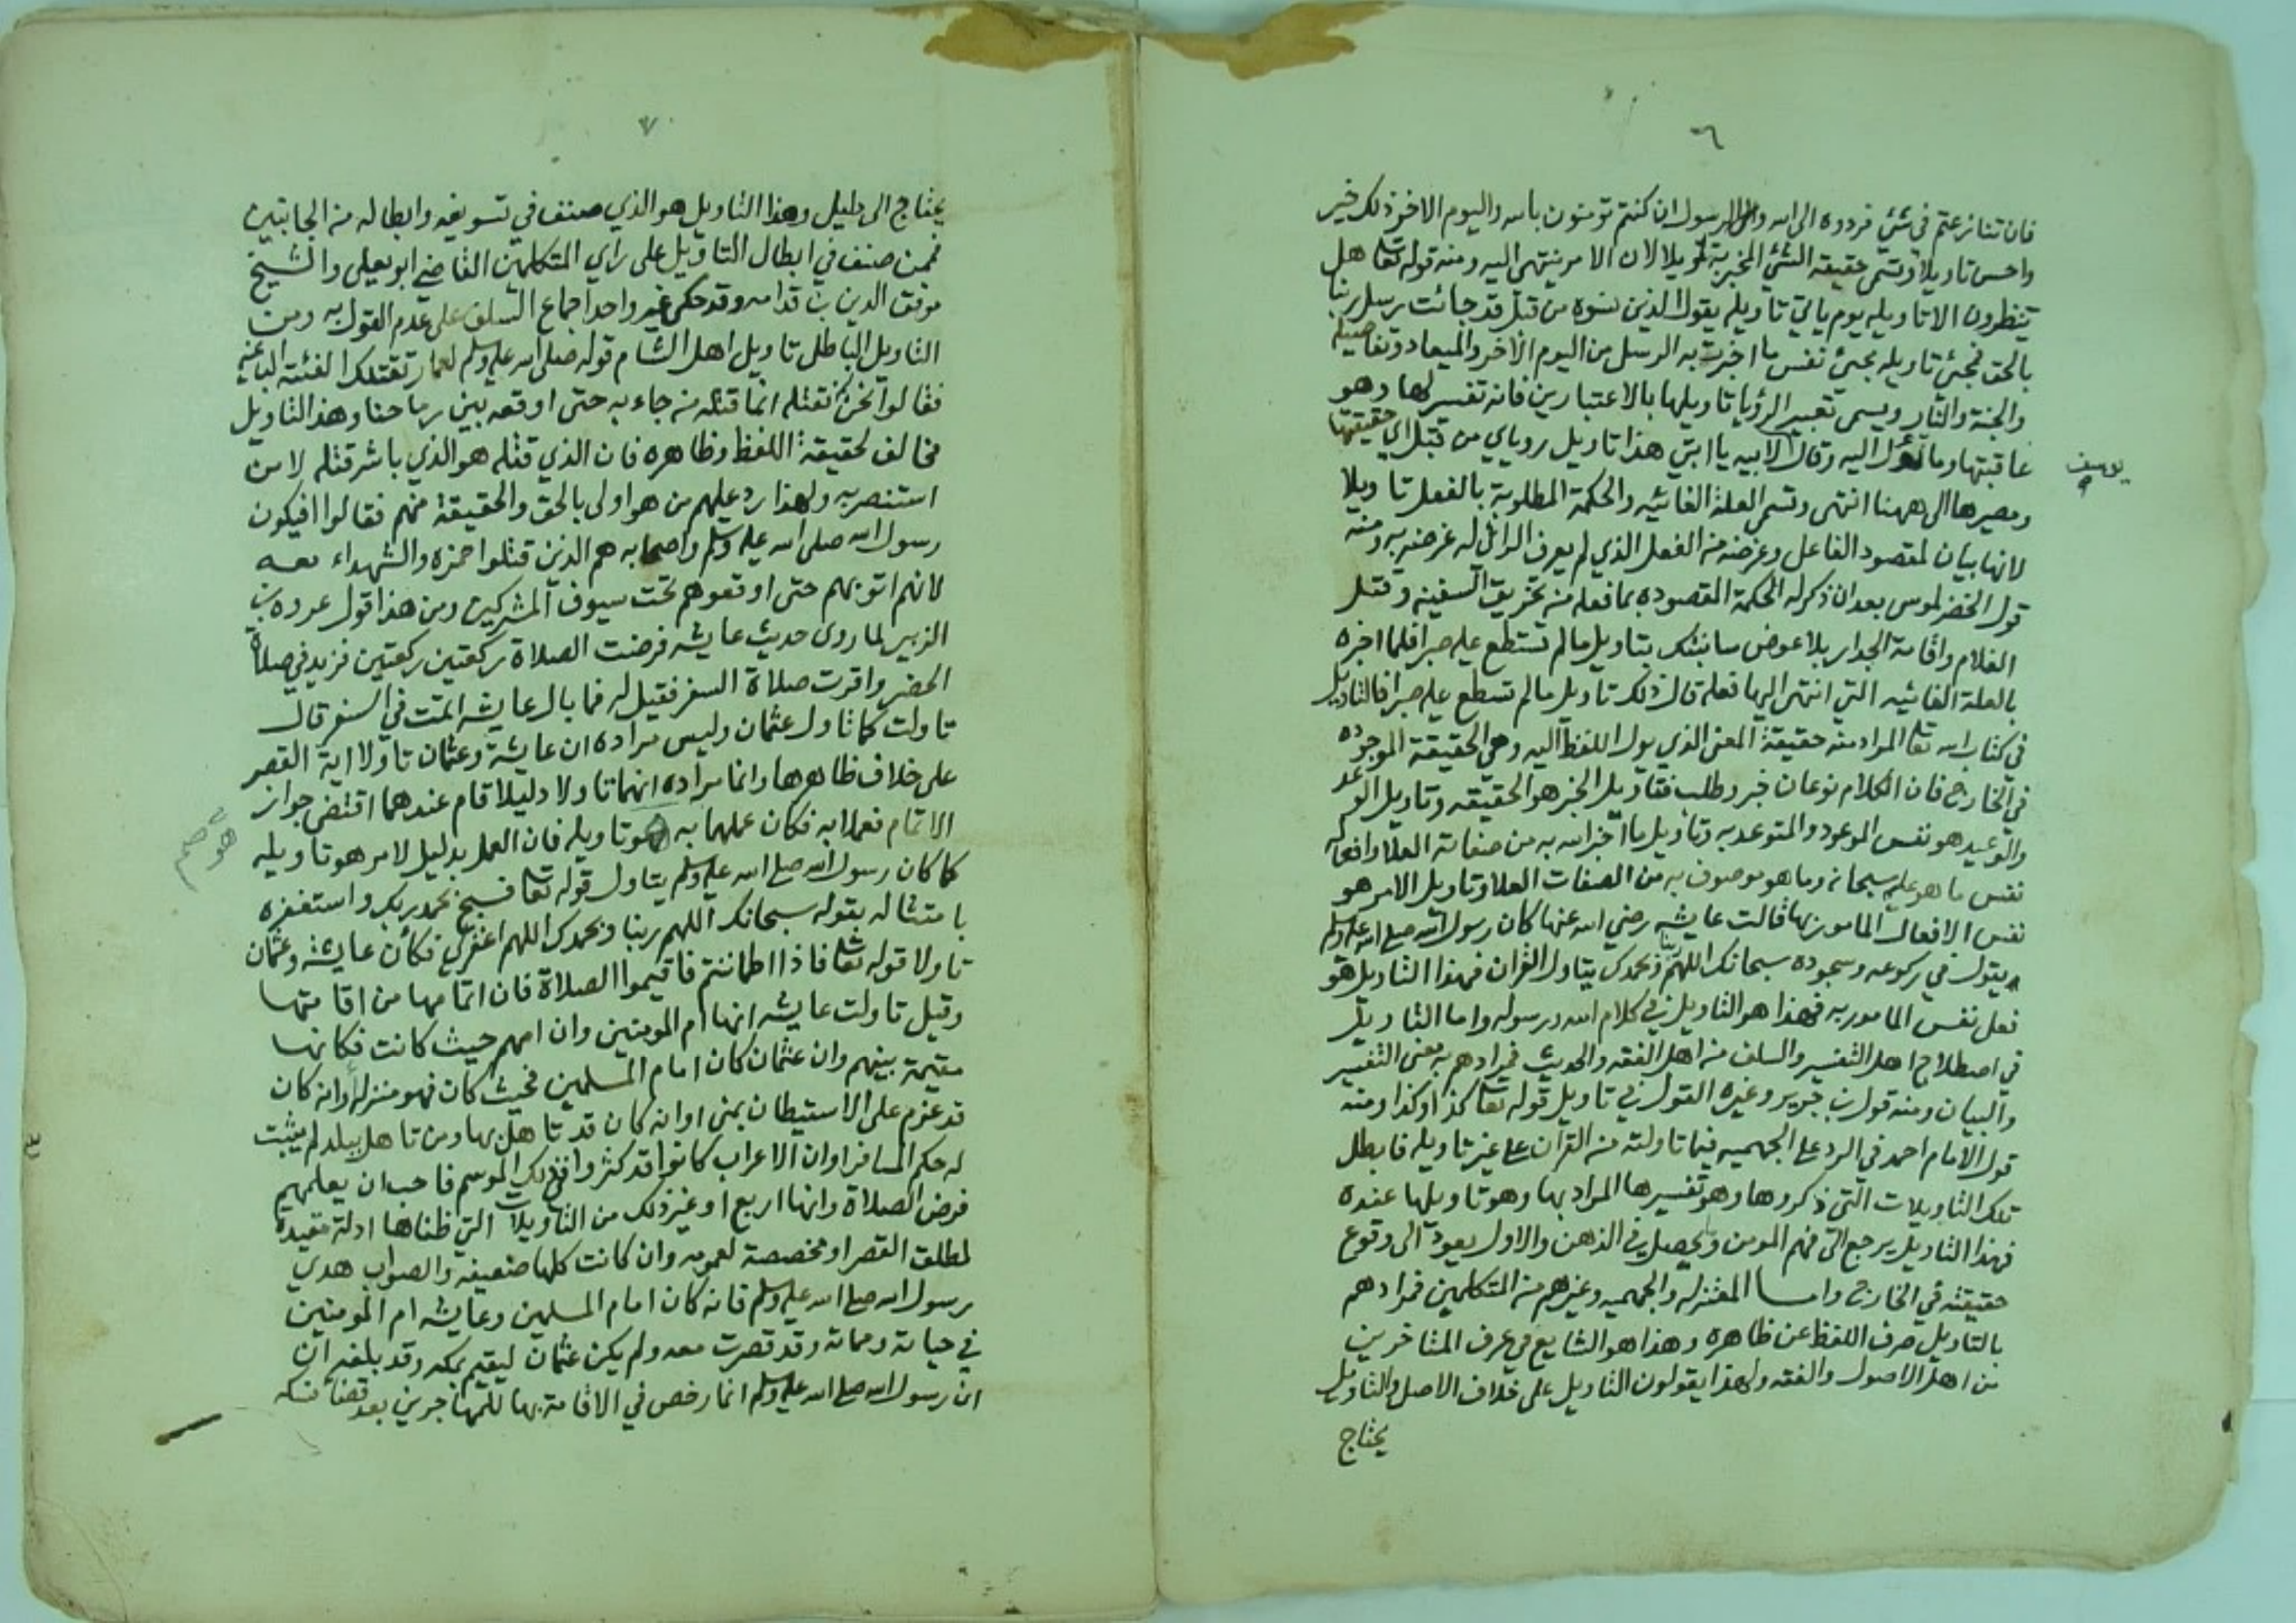 ٦
فان تنازعتم في شئ فردوه الى الله والرسول ان كنتم تومنون بالله واليوم الاخر ذلك خير
واحسن تاويلا وتسمى حقيقة الشئ المخبر به تاويلا لان الامر ينتهي اليه ومنه قوله تعا هل
ينظرون الا تاويله يوم ياتي تاويله يقول الذين نسوه من قبل قد جائت رسل ربنا
بالحق فمجئ تاويله مجئ نفس ما اخبرت به الرسل من اليوم الاخر والميعاد وتفاصيله
والجنة والنار ويسمى تعبير الرؤيا تاويلها بالاعتبارين فانه تفسير لها وهو
عاقبتها وما تؤل اليه وقال لابيه يا ابتي هذا تاويل روياي من قبل اي حقيقتها
يوسف
ومصيرها الى ههنا انتهى وتسمى العلة الغائيه والحكمة المطلوبة بالفعل تاويلا
لانها بيان لمقصود الفاعل وغرضه من الفعل الذي لم يعرف الرائي له غرضه به ومنه
قول الخضر لموسى بعد ان ذكر له الحكمة المقصوده بما فعله من تخريق السفينه وقتل
الغلام واقامة الجدار بلا عوض سانبئك بتاويل مالم تستطع عليه صبرا فلما اخبره
بالعلة الغائيه التي انتهى اليها فعله قال ذلك تاويل مالم تسطع عليه صبرا فالتاويل
في كتاب الله تعا المراد منه حقيقة المعنى الذي يول اللفظ اليه وهي الحقيقة الموجوده
في الخارج فان الكلام نوعان خبر وطلب فتاويل الخبر هو الحقيقه وتاويل الوعد
والوعيد هو نفس الموعود والمتوعد به وتاويل ما اخبر الله به من صفاته العلا وافعاله
نفس ما هو عليه سبحانه وما هو موصوف به من الصفات العلا وتاويل الامر هو
نفس الافعال المامور بها قالت عايشه رضي الله عنها كان رسول الله صلى الله عليه وسلم
يقول في ركوعه وسجوده سبحانك اللهم ربنا وبحمدك يتاول القران فهذا التاويل هو
فعل نفس المامور به فهذا هو التاويل في كلام الله ورسوله واما التاويل
في اصطلاح اهل التفسير والسلف من اهل الفقه والحديث فمرادهم به معنى التفسير
والبيان ومنه قول بن جرير وغيره القول في تاويل قوله تعا كذا وكذا ومنه
قول الامام احمد في الرد على الجهميه فيما تاولته من القرآن على غير تاويله فابطل
تلك التاويلات التي ذكروها وهو تفسيرها المراد بها وهو تاويلها عنده
فهذا التاويل يرجع الى فهم المومن ويحصل في الذهن والاول يعود الى وقوع
حقيقته في الخارج واما المعتزله والجهميه وغيرهم من المتكلمين فمرادهم
بالتاويل صرف اللفظ عن ظاهره وهذا هو الشايع في عرف المتاخرين
من اهل الاصول والفقه ولهذا يقولون التاويل على خلاف الاصل والتاويل
يحتاج
٧
يحتاج الى دليل وهذا التاويل هو الذي صنف في تسويغه وابطاله من الجانبين
فممن صنف في ابطال التاويل على راي المتكلمين القاضي ابو يعلى والشيخ
موفق الدين بن قدامه وقد حكى غير واحد اجماع السلف على عدم القول به ومن
التاويل الباطل تاويل اهل الشام قوله صلى الله عليه وسلم لعمار تقتلك الفئة الباغيه
فقالوا نحن لم نقتله انما قتله من جاء به حتى اوقعه بين رماحنا وهذا التاويل
مخالف لحقيقة اللفظ وظاهره فان الذي قتله هو الذي باشر قتله لا من
استنصر به ولهذا رد عليهم من هو اولى بالحق والحقيقة منهم فقالوا افيكون
رسول الله صلى الله عليه وسلم واصحابه هم الذين قتلوا حمزه والشهداء معه
لانهم اتو بهم حتى اوقعوهم تحت سيوف المشركين ومن هذا قول عروه بن
الزبير لما روى حديث عايشه فرضت الصلاة ركعتين ركعتين فزيد في صلاة
الحضر واقرت صلاة السفر فقيل له فما بال عايشه اتمت في السفر قال
تاولت كما تاول عثمان وليس مراده ان عايشة وعثمان تاولا اية القصر
على خلاف ظاهرها وانما مراده انهما تاولا دليلا قام عندهما اقتضى جواز
الاتمام فعملا به فكان عملهما به هو تاويله فان العمل بدليل لامر هو تاويله
هو صح
كما كان رسول الله صلى الله عليه وسلم يتاول قوله تعا فسبح بحمد ربك واستغفره
بامتثاله بقوله سبحانك اللهم ربنا وبحمدك اللهم اغفر لي فكأن عايشه وعثمان
تاولا قوله تعا فاذا اطماننتم فاقيموا الصلاة فان اتمامها من اقامتها
وقيل تاولت عايشه انها ام المومنين وان امهم حيث كانت فكانها
مقيمة بينهم وان عثمان كان امام المسلمين فحيث كان فهو منزله او انه كان
قد عزم على الاستيطان بمنى او انه كان قد تاهل بها ومن تاهل ببلد لم يثبت
له حكم المسافر او ان الاعراب كانوا قد كثروا في ذلك الموسم فاحب ان يعلمهم
فرض الصلاة وانها اربع او غير ذلك من التاويلات التي ظناها ادلة مقيدة
لمطلق القصر او مخصصة لعمومه وان كانت كلها ضعيفه والصواب هدي
رسول الله صلى الله عليه وسلم فانه كان امام المسلمين وعايشه ام المومنين
في حياته ومماته وقد قصرت معه ولم يكن عثمان ليقيم بمكه وقد بلغه ان
ان رسول الله صلى الله عليه وسلم انما رخص في الاقامة بها للمهاجرين بعد قضاء نسكه